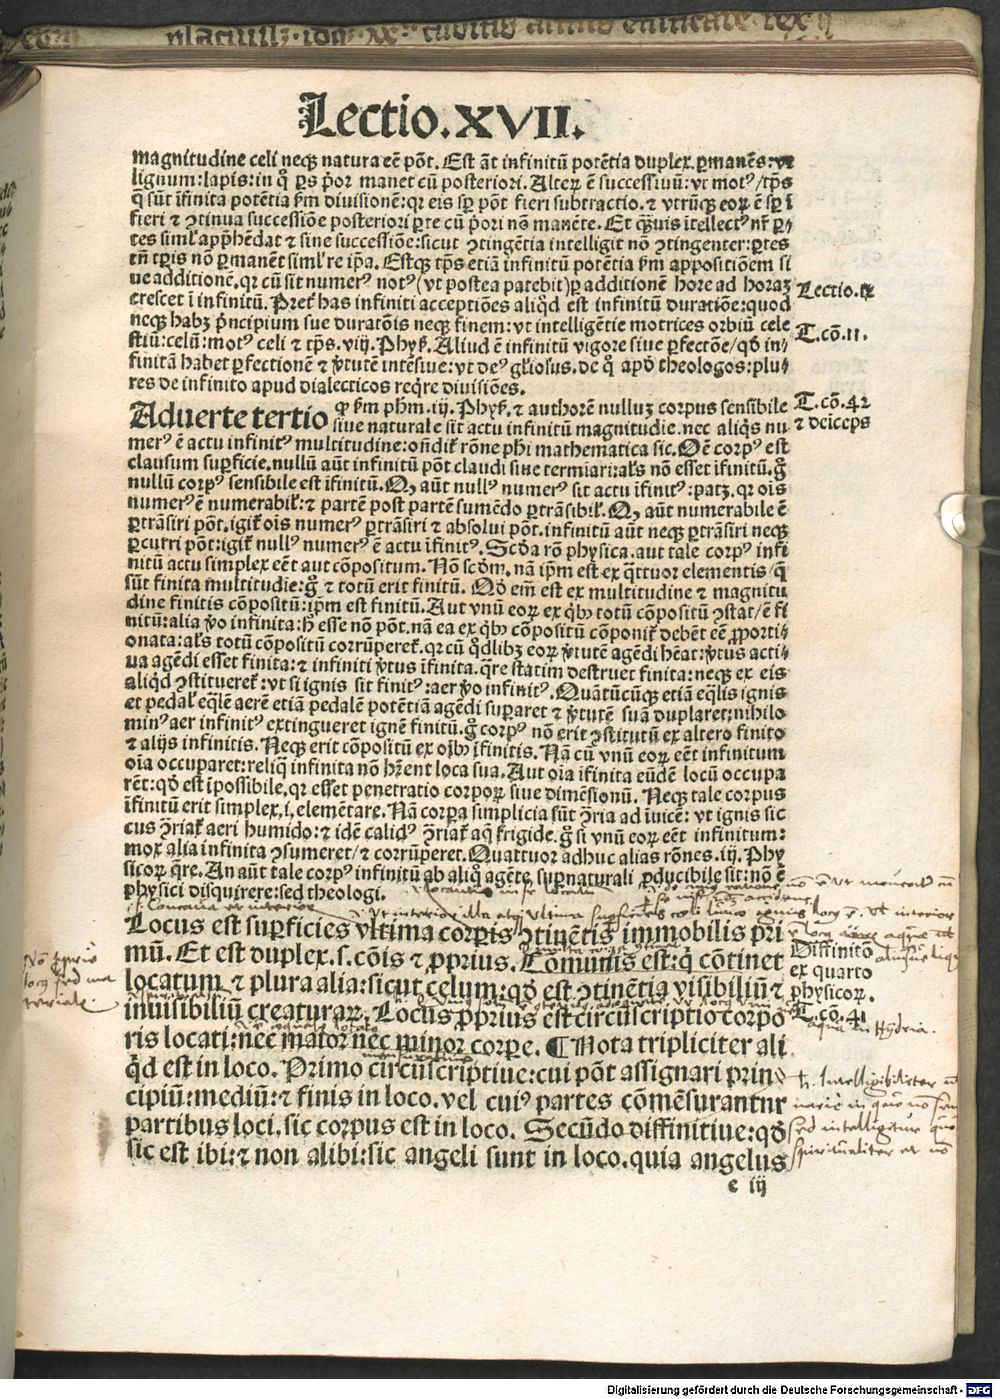 Lectio.XVII.
magnitudine celi neqꝫ natura eē põt. Est āt infinitū potētia duplex. ꝑmanēs: vt
lignum: lapis: in q̊ ꝑs p̄or manet cū posteriori. Alteꝝ ē successiuū: vt motꝰ/tp̄s
q̄ sūt īfinita potētia ẜm divisionē: qꝛ eis sp̄ põt fieri subtractio. ⁊ vtrūqꝫ eoꝝ ē sp̄ ī
fieri ⁊ ꝯtinua successiõe posteriori ꝑte cū p̄ori nõ manēte. Et q̄ꝫuis ītellectꝰ nr̄ ꝑ⸗
tes siml̕ app̄hēdat ⁊ sine successiõe: sicut ꝯtingētia intelligit nõ ꝯtingenter: ꝑtes
tñ tp̄is nõ ꝑmanēt siml̕ re ip̄a. Estqꝫ tp̄s etiā infinitū potētia ẜm appositiõem si
ue additionē. qꝛ cū sit numerꝰ motꝰ (vt postea patebit) ꝑ additionē hore ad horaꝫ
crescet ī infinitū. Preť has infiniti acceptiões aliq̄d est infinitū duratiõe: quod
neqꝫ habꝫ p̄ncipium sue duratõis neqꝫ finem: vt intelligētie motrices orbiū cele
stiū: celū: motꝰ celi ⁊ tp̄s. viij. Phyẜ. Aliud ē infinitū vigore siue ꝑfectõe/qd̕ in⸗
finitā habet ꝑfectionē ⁊ v̓tutē intēsiue: vt deꝰ gl̓iosus. de q̊ apd̕ theologos: plu⸗
res de infinito apud dialecticos reqr̄e diuisiões.
Lectio.ix
T.cõ.11.
Aduerte tertio ꝙ ẜm phm̄.iij. Phyẜ. ⁊ authorē nulluꝫ corpus sensibile
siue naturale sit actu infinitū magnitudīe. nec aliq̄s nu
merꝰ ē actu infinitꝰ multitudine: oñdiť rõne phi mathematica sic. Oē corpꝰ est
clausum suꝑficie. nullū aūt infinitū põt claudi siue termīari: al̓s nõ esset īfinitū. g̊
nullū corpꝰ sensibile est īfinitū. Qꝫ aūt nullꝰ numerꝰ sit actu īfinitꝰ: patꝫ. qꝛ oīs
numerꝰ ē numerabiľ: ⁊ partē post partē sumēdo ꝑtrāsibiľ. Qꝫ aūt numerabile ē
ꝑtrāsiri põt. igiť oīs numerꝰ ꝑtrāsiri ⁊ absolui põt. infinitū aūt neqꝫ ꝑtrāsiri neqꝫ
ꝑcurri põt: igiť nullꝰ numerꝰ ē actu īfinitꝰ. Scd̕a rõ physica. aut tale corpꝰ infi
nitū actu simplex eēt aut cõpositum. Nõ scd̕m. nā ip̄m est ex q̄ttuor elementis/q̄
sūt finita multitudīe: g̊ ⁊ totū erit finitū. Qd̕ em̄ est ex multitudine ⁊ magnitu
dine finitis cõpositū: ip̄m est finitū. Aut vnū eoꝝ ex qb̕ꝰ totū cõpositū ꝯstat/ē fi
nitū: alia v̓o infinita: h̓ esse nõ põt. nā ea ex qb̕ꝰ cõpositū cõponiť debēt eē ꝓporti⸗
onata: al̓s totū cõpositū corrūpereť. qꝛ cū qd̕libꝫ eoꝝ v̓tutē agēdi hēat: v̓tus acti⸗
ua agēdi esset finita: ⁊ infiniti v̓tus īfinita. qr̄e statim destruet finita: neqꝫ ex eis
aliq̄d ꝯstituereť: vt si ignis sit finitꝰ: aer v̓o infinitꝰ. Quātūcūqꝫ etiā eq̄lis ignis
et pedaľ eq̄lē aerē etiā pedalē potētiā agēdi suꝑaret ⁊ v̓tutē suā duplaret: nihilo
minꝰ aer infinitꝰ extingueret ignē finitū. g̊ corpꝰ nõ erit ꝯstitutū ex altero finito
⁊ alijs infinitis. Neqꝫ erit cõpositū ex oīb̕ꝰ īfinitis. Nā cū vnū eoꝝ eēt infinitum
oīa occuparet: reliq̄ infinita nõ hr̄ent loca sua. Aut oīa īfinita eūdē locū occupa
rēt: qd̕ est īpossibile. qꝛ esset penetratio corpoꝝ siue dimēsionū. Neqꝫ tale corpus
īfinitū erit simplex.i. elemētare. Nā corpa simplicia sūt ꝯ̓ria ad īuicē: vt ignis sic
cus ꝯ̓riať aeri humido: ⁊ idē calidꝰ ꝯ̓riať aq̄ frigide. g̊ si vnū eoꝝ eēt infinitum:
mox alia infinita ꝯsumeret/⁊ corrūperet. Quattuor adhuc alias rõnes.iij. Phy
sicoꝝ qr̄e. An aūt tale corpꝰ infinitū ab aliq̊ agēte supnaturali ꝓducibile sit: nõ ē
physici disquirere: sed theologi.
T.cõ.42
⁊ deiceps
Locus est suꝑficies vltima corpis ꝯtinētis immobilis pri
mū. Et est duplex.s. cõis ⁊ ꝓprius. Comunis est: q̊ cõtinet
locatum ⁊ plura alia: sicut celum: qd̕ est ꝯtinētia visibiliū ⁊
inuisibiliū creaturaꝝ. Locus ꝓprius est circūscriptio corpo
ris locati: nec maior nec minor corpe. ¶ Nota tripliciter ali
q̄d est in loco. Primo circūscriptiue: cui põt assignari prin⸗
cipiū: mediū: ⁊ finis in loco. vel cuiꝰ partes cõmēsurantur
partibus loci. sic corpus est in loco. Secūdo diffinitiue: qd̕
sic est ibi: ⁊ non alibi: sic angeli sunt in loco. quia angelus
Diffinitõ
ex quarto
physicoꝝ.
T.cõ.41
aqua in Hydria.
e iij
Digitalisierung gefördert durch die Deutsche Forschungsgemeinschaft - DFG